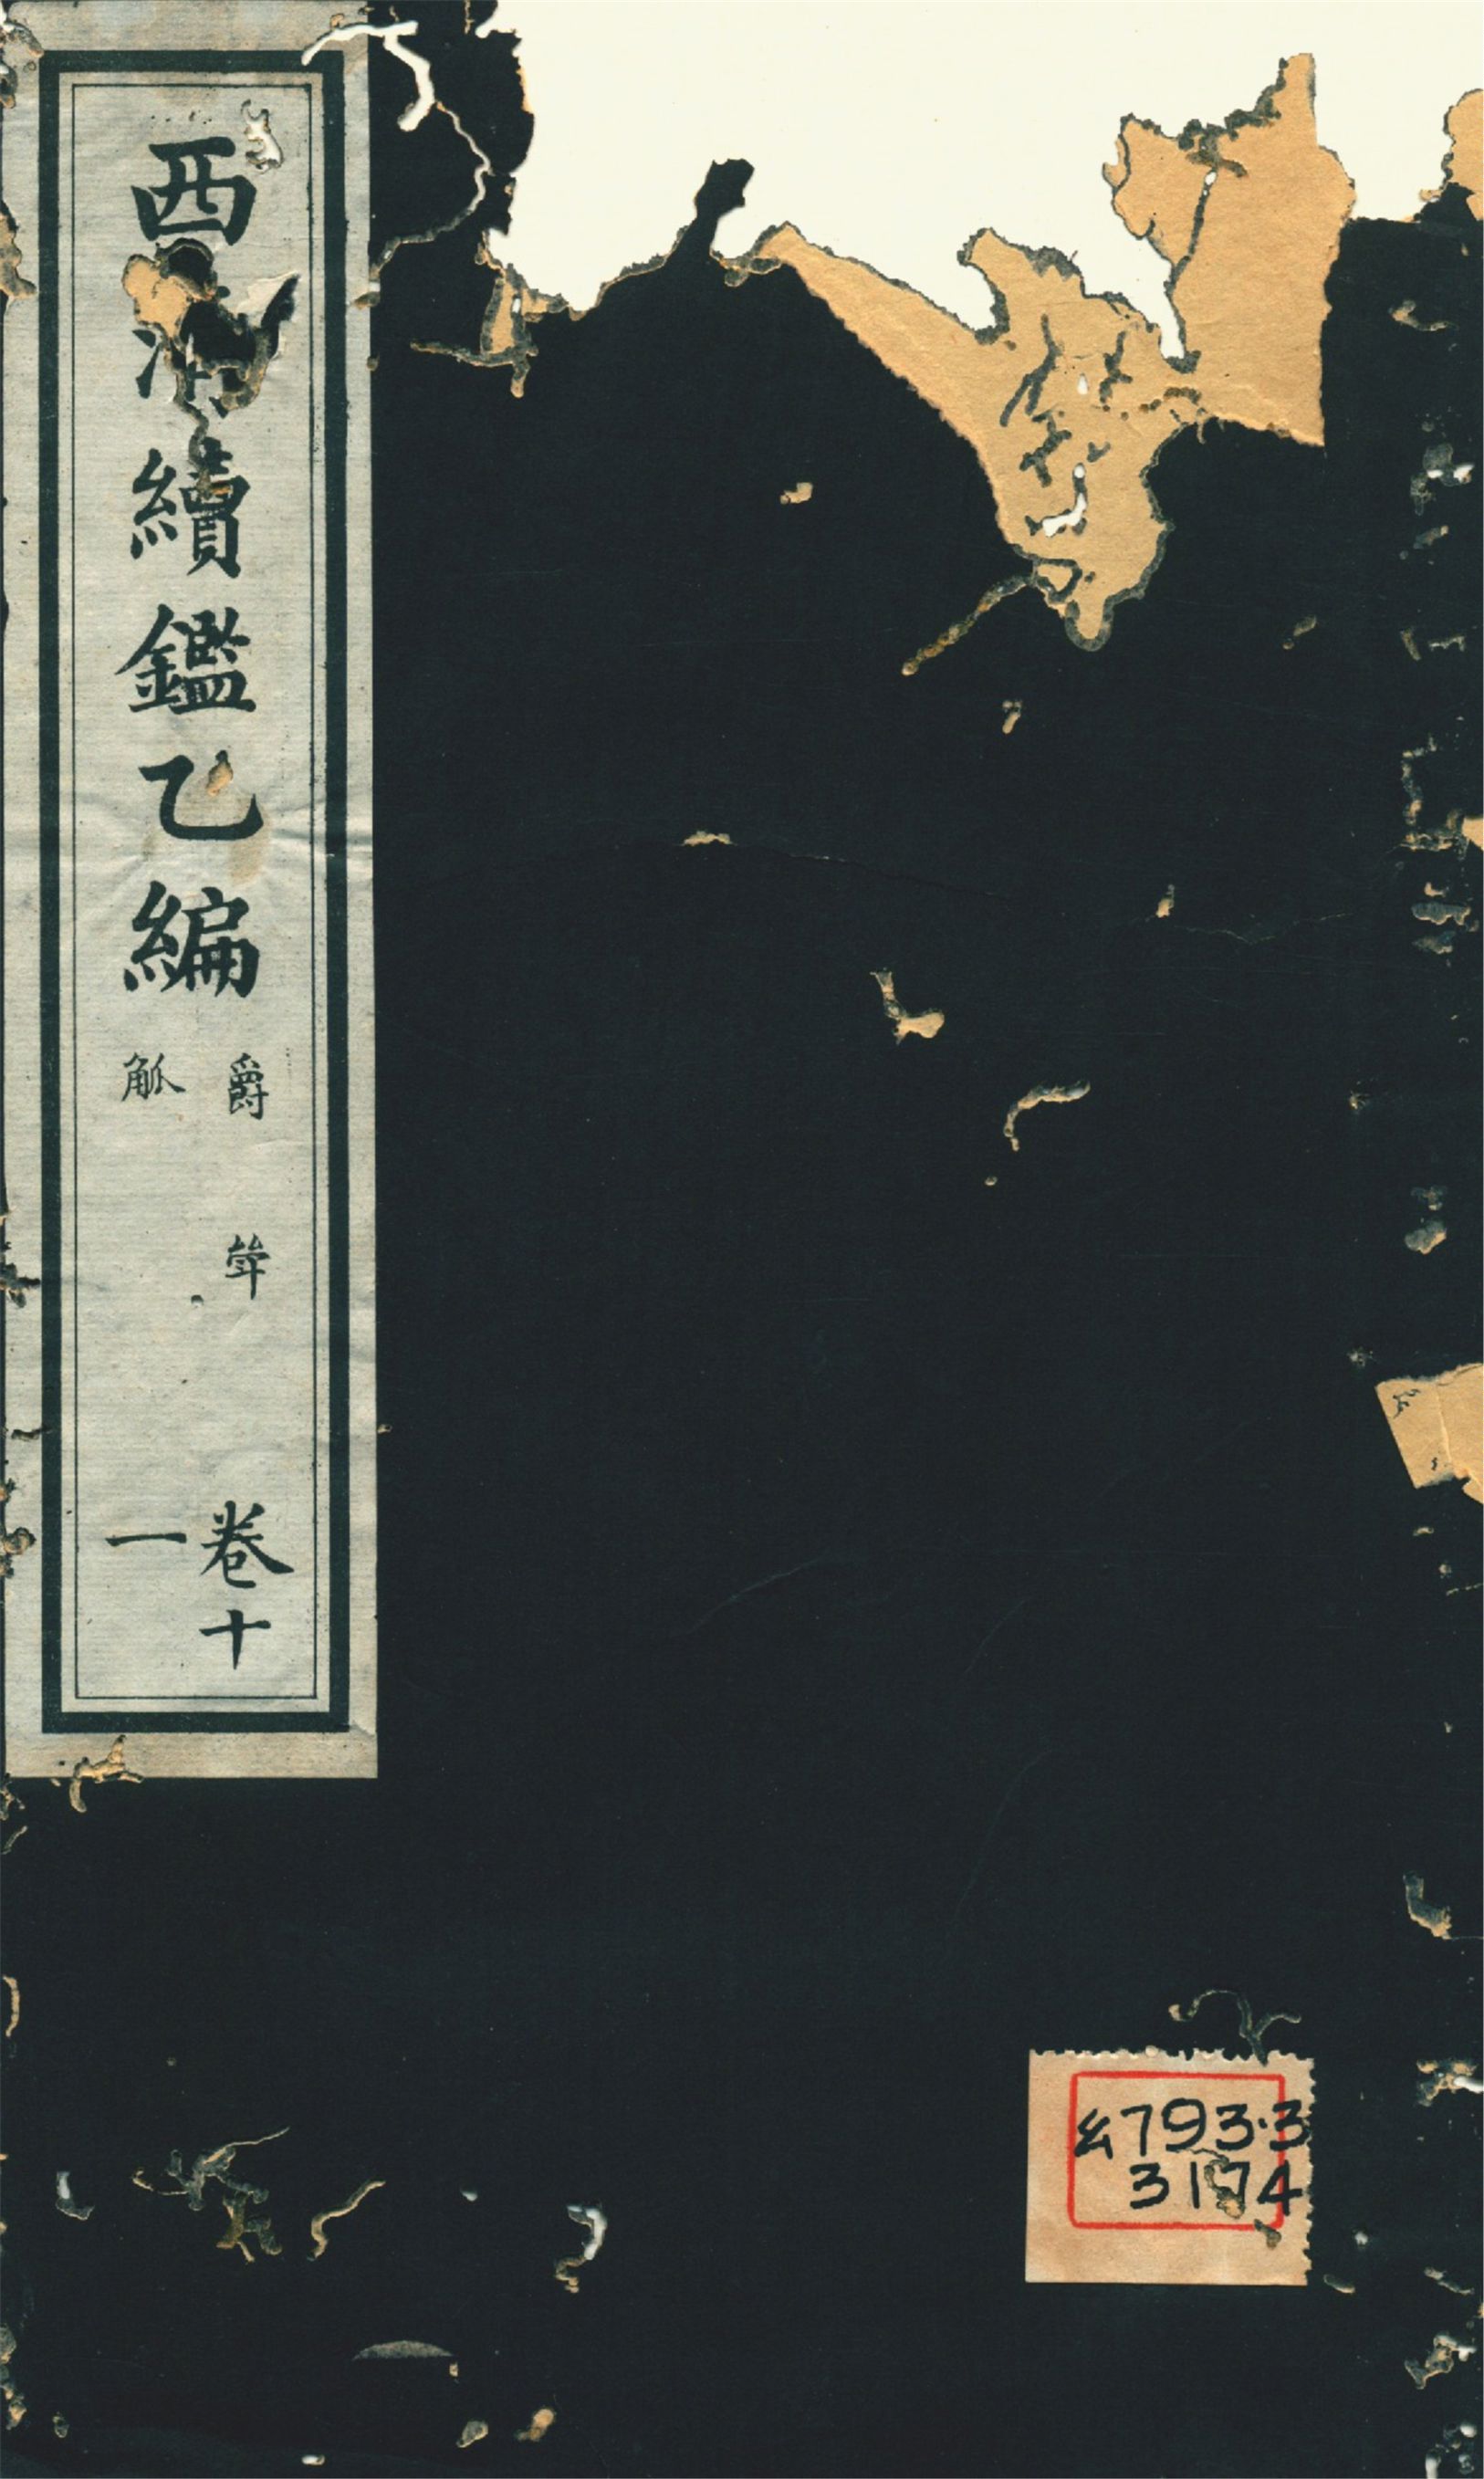 西清續鑑乙編
爵 斝
觚
卷十
一
793.3
3174